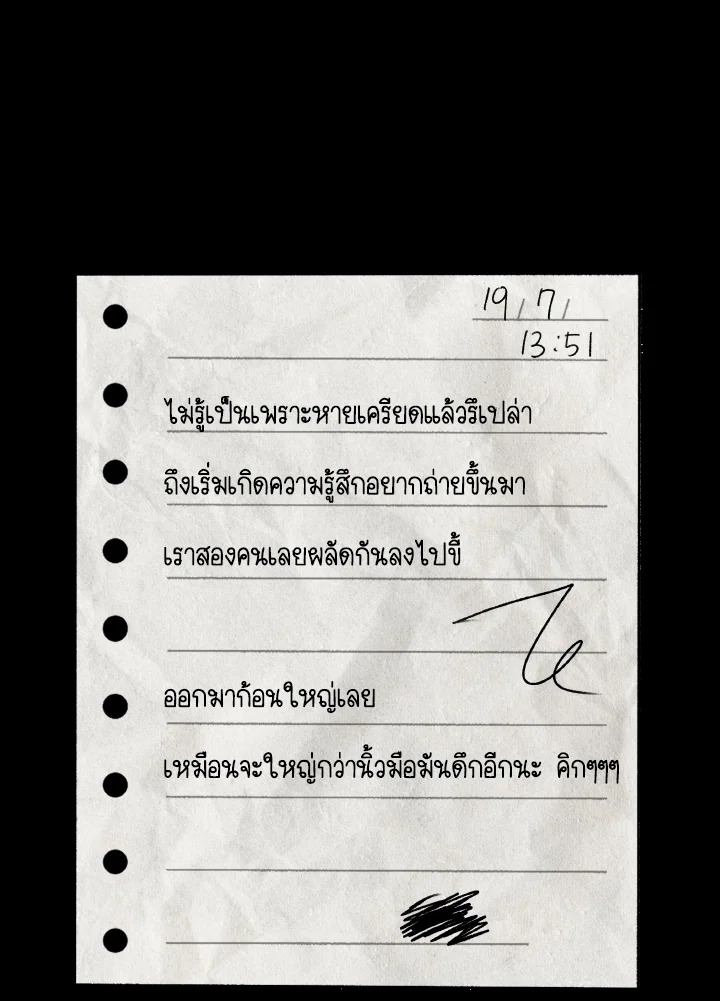 19/7/
13:51
ไม่รู้เป็นเพราะหายเครียดแล้วรึเปล่า
ถึงเริ่มเกิดความรู้สึกอยากถ่ายขึ้นมา
เราสองคนเลยผลัดกันลงไปขี้
ออกมาก้อนใหญ่เลย
เหมือนจะใหญ่กว่านิ้วมือมันดึกอีกนะ คิกๆๆๆ